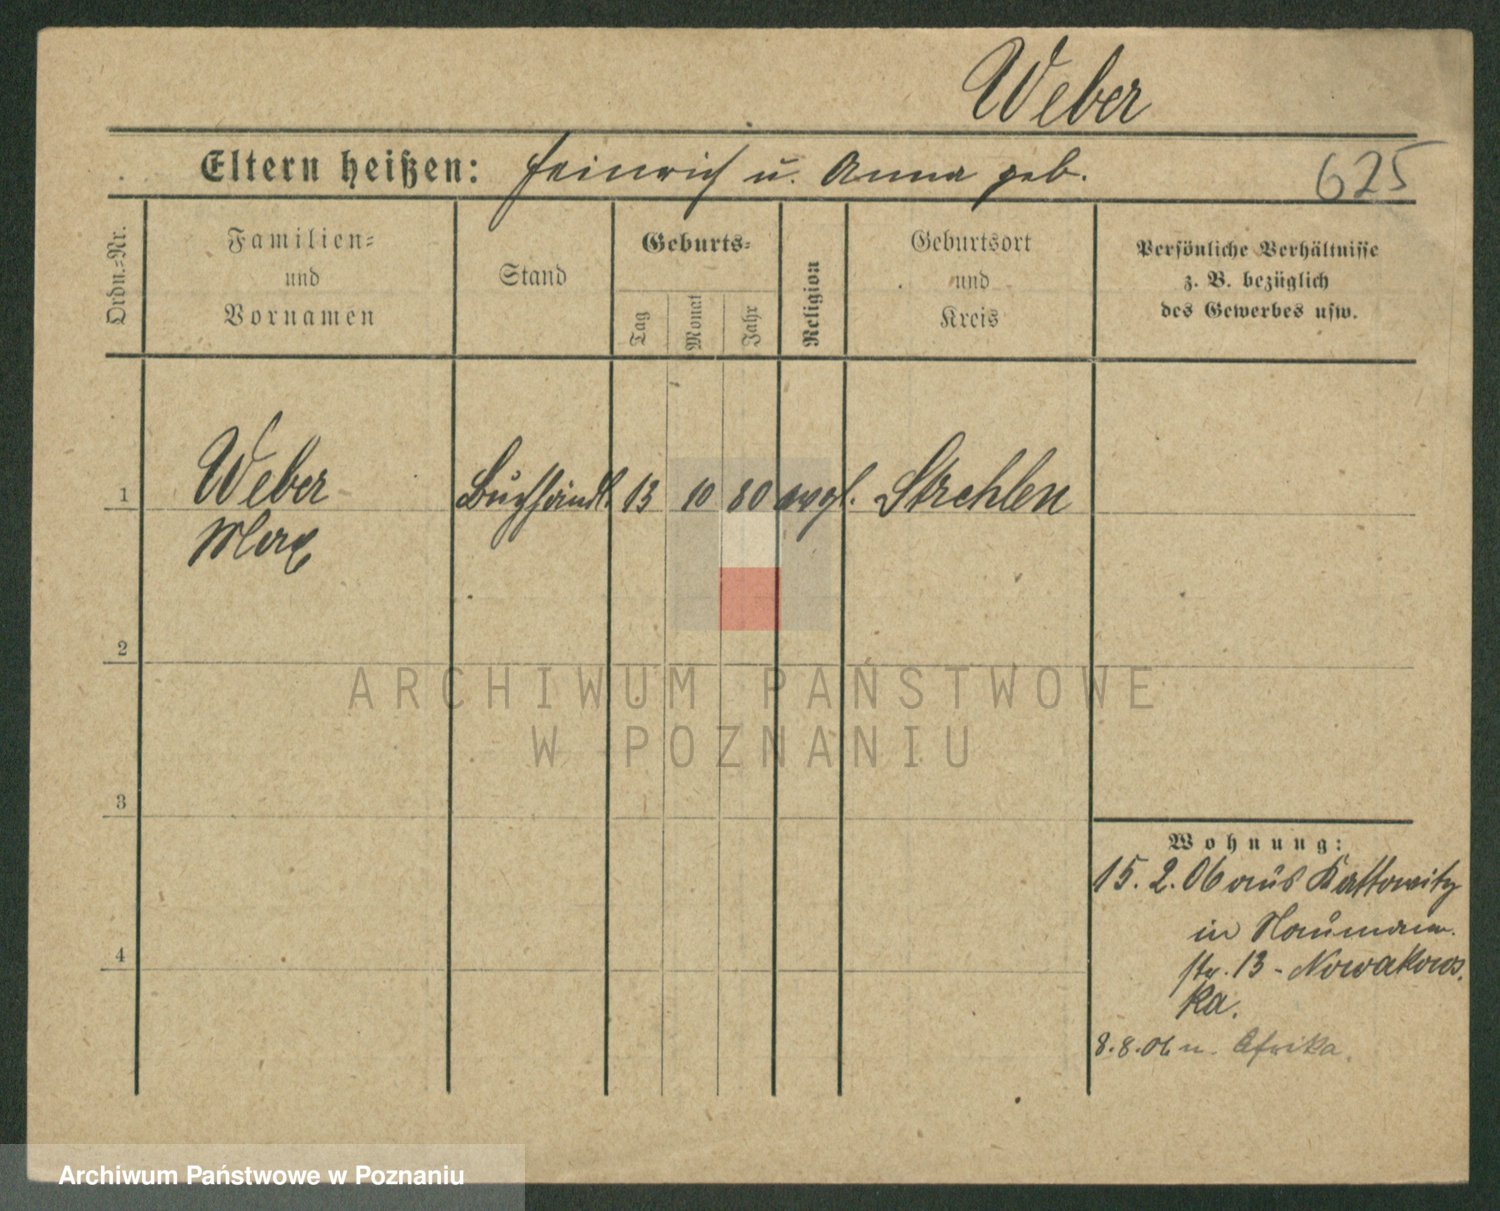 Weber
Eltern heißen: Heinrich u. Anna geb.
625
Ordn.-Nr.
Familien-
und
Vornamen
Stand
Geburts-
Tag
Monat
Jahr
Religion
Geburtsort
und
Kreis
Persönliche Verhältnisse
z. B. bezüglich
des Gewerbes usw.
1 Weber Buchhändl. 13 10 80 evgl. Strehlen
Max
2
ARCHIWUM PAŃSTWOWE
W POZNANIU
3
Wohnung:
15. 2. 06 aus Kattowitz
in Naumann-
4
str. 13 - Nowakows
ka.
8. 8. 06 n. Afrika.
Archiwum Państwowe w Poznaniu